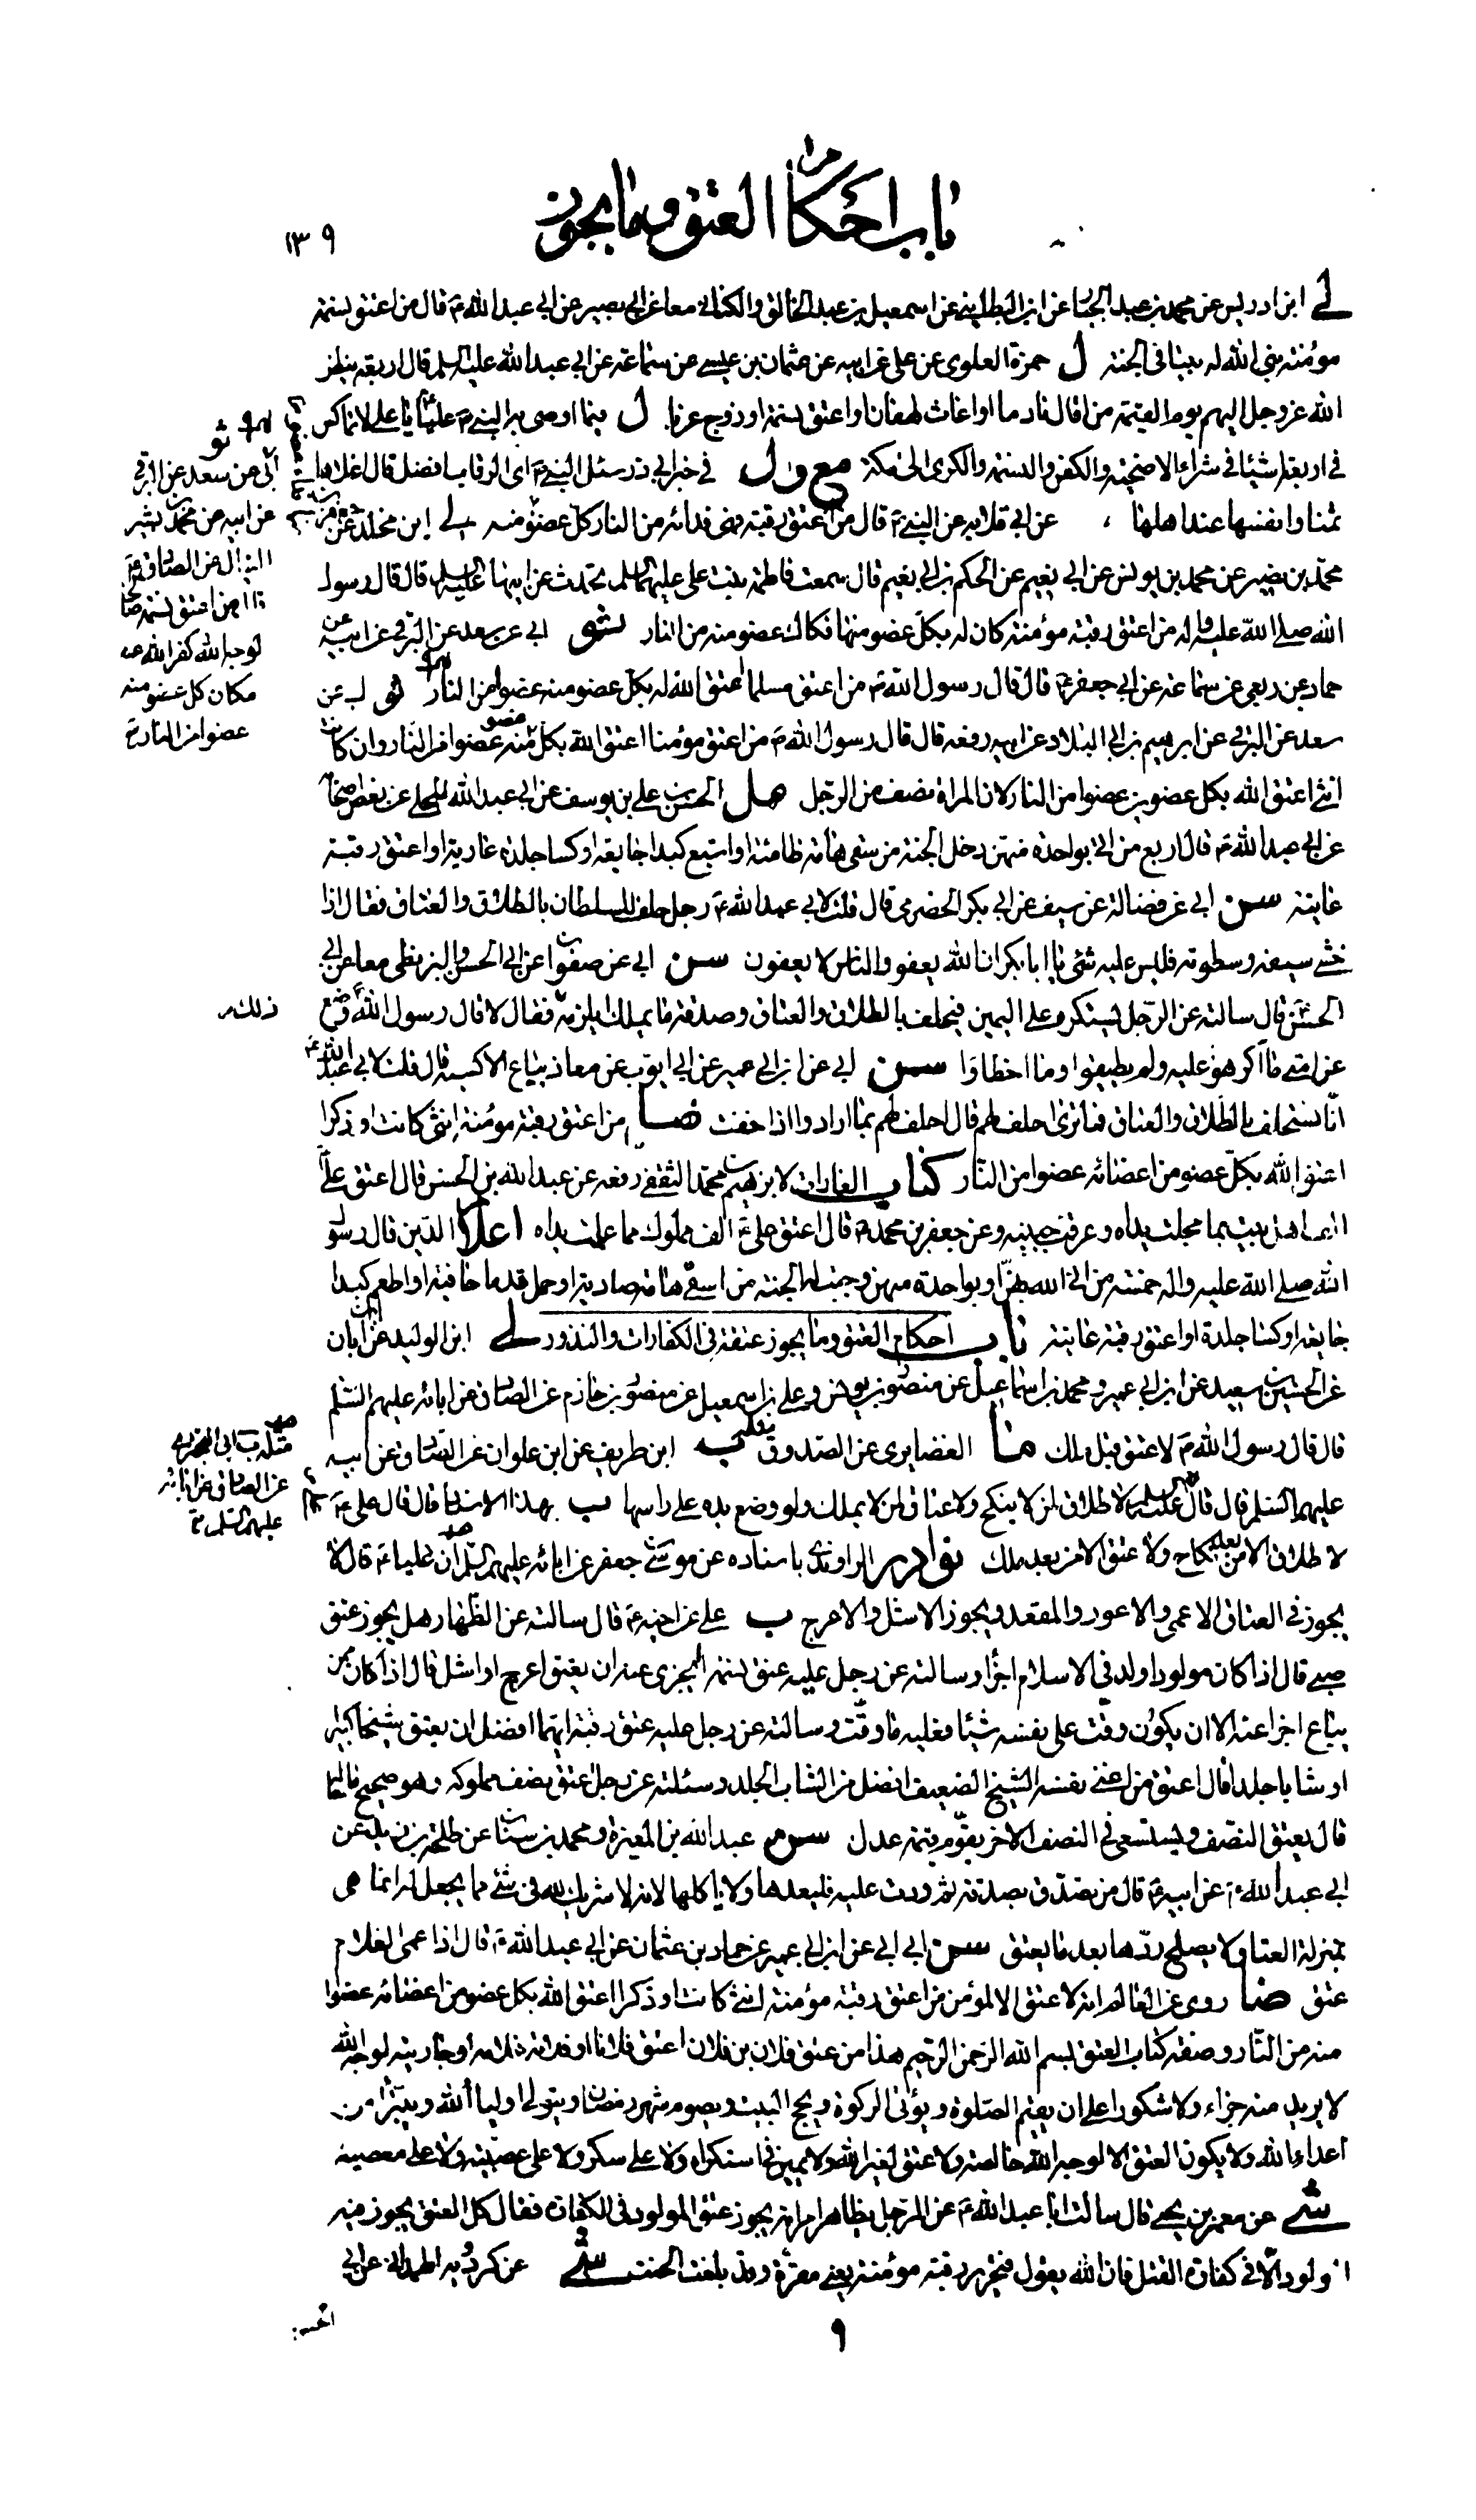 باب احكام العتق وما يجوز
١٣٩
لى ابن ادريس عن محمد بن عبد الجبار عن ابن البطاينى عن اسمعيل بن عبد الخالق والكنانى معا عن ابى بصير عن ابى عبد الله ع قال من اعتق نسمة
مؤمنة بنى الله له بيتا فى الجنة ل حمزة العلوى عن على عن ابيه عن عثمان بن عيسى عن سماعة عن ابى عبد الله عليه السلم قال اربعة ينظر
الله عز وجل اليهم يوم القيمة من اقال نادما او اغاث لهفان او اعتق نسمة او زوج عزبا ل فيما اوصى به النبى ص عليا ع يا على لا تماكس
فى اربعة اشياء فى شراء الاضحية والكفن والنسمة والكرى الى مكة مع ول فى خبر ابى ذر سئل النبى ص اى الرقاب افضل قال اغلاها
ثمنا وانفسها عند اهلها عن ابى قلابة عن النبى ص قال من اعتق رقبة فهى فداؤه من النار كل عضو منه لى ابن مخلد عن
محمد بن نصير عن محمد بن يونس عن ابى نعيم عن الحكم بن ابى نعيم قال سمعت فاطمة بنت على عليهما السلم تحدث عن ابيها عليه السلم قال قال رسول
الله صلى الله عليه واله من اعتق رقبة مؤمنة كان له بكل عضو منها فكاك عضو منه من النار ثو ابى عن سعد عن البرقى عن ابيه عن
حماد عن ربعى عن سماعة عن ابى جعفر ع قال قال رسول الله ص من اعتق مسلما اعتق الله له بكل عضو منه عضوا من النار ثو ابى عن
سعد عن البرقى عن ابرهيم بن ابى البلاد عن ابيه رفعه قال قال رسول الله ص من اعتق مؤمنا اعتق الله بكل عضو منه عضوا من النار وان كانت
انثى اعتق الله بكل عضوين عضوا من النار لان المراة نصف من الرجل هل الحسن بن على بن يوسف عن ابى عبد الله البجلى عن بعض اصحابه
عن ابى عبد الله ع قال اربع من اتى بواحدة منهن دخل الجنة من سقى هامة ظامئة او اشبع كبدا جايعة او كسا جلدة عارية او اعتق رقبة
عانية سن ابى عن فضالة عن سيف عن ابى بكر الحضرمى قال قلت لابى عبد الله ع رجل حلف للسلطان بالطلاق والعتاق فقال اذا
خشى سيفه وسطوته فليس عليه شئ يا ابا بكر ان الله يعفو والناس لا يعفون سن ابى عن صفوان عن ابى الحسن والبزنطى معا عن ابى
الحسن ع قال سالته عن الرجل يستكره على اليمين فيحلف بالطلاق والعتاق وصدقة ما يملك ايلزمه ذلك فقال لا قال رسول الله ص وضع
عن امتى ما اكرهوا عليه ولم يطيقوا وما اخطاوا سن ابى عن ابن ابى عمير عن ابى ايوب عن معاذ بياع الاكسية قال قلت لابى عبد الله ع
انا نستحلف بالطلاق والعتاق فما ترى احلف لهم قال احلف لهم بما ارادوا اذا خفت ضا من اعتق رقبة مؤمنة انثى كانت او ذكرا
اعتق الله بكل عضو من اعضائه عضوا من النار كتاب الغارات لابرهيم بن محمد الثقفى رفعه عن عبد الله بن الحسن قال اعتق على ع
الف اهل بيت بما مجلت يداه وعرق جبينه وعن جعفر بن محمد ع قال اعتق على ع الف مملوك مما عملت يداه اعلام الدين قال رسول
الله صلى الله عليه واله خمسة من اتى الله بهن او بواحدة منهن وجبت له الجنة من اسقى هامة صادية او حمل قدما حافية او اطعم كبدا
جايعة او كسا جلدة او اعتق رقبة عانية باب احكام العتق وما يجوز عتقه فى الكفارات والنذور لى ابن الوليد عن ابن ابان
عن الحسين بن سعيد عن ابن ابى عمير ومحمد بن اسماعيل عن منصور بن يونس وعلى بن اسمعيل عن منصور بن حازم عن الصادق عن ابائه عليهم السلم
قال قال رسول الله ص لا عتق قبل ملك ما الغضايرى عن الصدوق مثله ب ابن طريف عن ابن علوان عن الصادق عن ابيه
عليهما السلم قال قال على عليه السلم لا طلاق لمن لا ينكح ولا عتاق لمن لا يملك ولو وضع يده على راسها ب بهذا الاسناد قال قال على ع
لا طلاق الا من بعد نكاح ولا عتق الا من بعد ملك نوادر الراوندى باسناده عن موسى بن جعفر عن ابائه عليهم السلم ان عليا ع قال لا
يجوز فى العتاق الاعمى والاعور والمقعد ويجوز الاشل والاعرج ب على عن اخيه ع قال سالته عن الظهار هل يجوز عتق
صبى قال اذا كان مولودا ولد فى الاسلام اجزأ وسالته عن رجل عليه عتق نسمة ايجزى عنه ان يعتق اعرج او اشل قال اذا كان ممن
يباع اجزأ عنه الا ان يكون وقت على نفسه شيئا فعليه ما وقت وسالته عن رجل عليه عتق رقبة ايهما افضل ان يعتق شيخا كبيرا
او شابا جلدا قال اعتق من اغنى نفسه الشيخ الضعيف افضل من الشاب الجلد وسئلته عن رجل اعتق نصف مملوكه وهو صحيح ما حاله
قال يعتق النصف ويستسعى فى النصف الاخر يقوم قيمة عدل سن عبد الله بن المغيرة ومحمد بن سنان عن طلحة بن زيد عن
ابى عبد الله ع عن ابيه ع قال من تصدق بصدقة ثم ردت عليه فليعدها ولا ياكلها لانه لا شريك لله فى شئ مما يجعل له انما هى
بمنزلة العتاق لا يصلح ردها بعد ما يعتق سن ابى عن ابن ابى عمير عن حماد بن عثمان عن ابى عبد الله ع قال اذا عمى الغلام
عتق ضا روى عن العالم انه لا عتق الا لمؤمن من اعتق رقبة مؤمنة انثى كانت او ذكرا اعتق الله بكل عضو من اعضائه عضوا
منه من النار وصفة كتاب العتق بسم الله الرحمن الرحيم هذا من عتق فلان بن فلان اعتق فلانا او فلانة غلامه او جاريته لوجه الله
لا يريد منه جزاء ولا شكورا على ان يقيم الصلوة ويؤتى الزكوة ويحج البيت ويصوم شهر رمضان ويتولى اولياء الله ويتبرا من
اعداء الله ولا يكون العتق الا لوجه الله خالصة ولا عتق لغير الله ولا يمين فى استكراه ولا على سكر ولا على عصبية ولا على معصية
شى عن معمر بن يحيى قال سالت ابا عبد الله ع عن الرجل يظاهر امراته يجوز عتق المولود فى الكفارة فقال كل العتق يجوز فيه
المولود الا فى كفارة القتل فان الله يقول فتحرير رقبة مؤمنة يعنى مقرة وقد بلغت الحنث شى عن كردويه الهمدانى عن ابى
ثو
ابى عن سعد عن البرقى
عن ابيه عن محمد بن بشير
عن الصادق ع
من اعتق نسمة صالحة
لوجه الله كفر الله عنه
مكان كل عضو منه
عضوا من النار
ذلك
مثله ب ابى البخترى
عن الصادق عن ابائه
عليهم السلم
٩